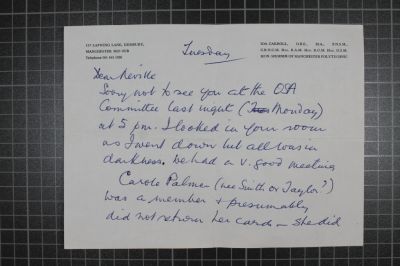 137 LAPWING LANE, DIDSBURY,
MANCHESTER M20 0UR
Telephone 061-445
IDA CARROLL, O.B.E., M.A., F.N.S.M.,
HON. MEMBER OF MANCHESTER POLYTECHNIC
Tuesday
Dear Neville
Sorry not to see you at the OSA
Committee last night (Monday)
at 5 pm. I looked in your room
as I went down but all was in
darkness. We had a v. good meeting
Carole Palmer (nee Smith or Taylor?)
was a member + presumably
did not return her card – she did